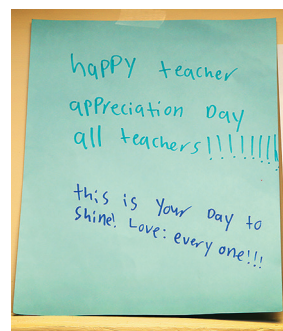 happy teacher
appreciation Day
all teachers!!!!!!!!
this is your Day to
shine! Love: every one!!!